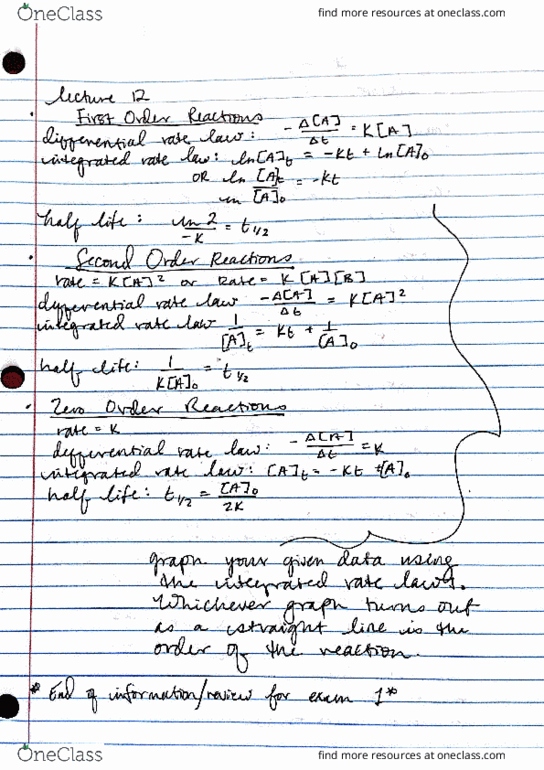 OneClass
find more resources at oneclass.com
Lecture 12
First Order Reactions
differential rate law: -Δ[A]/Δt = K[A]
integrated rate law: ln[A]t = -Kt + ln[A]0
OR ln [A]t / [A]0 = -Kt
half life: ln 2/-K = t 1/2
Second Order Reactions
rate = K[A]² or Rate = K [A][B]
differential rate law -Δ[A]/Δt = K[A]²
integrated rate law 1/[A]t = Kt + 1/[A]0
half life: 1/K[A]0 = t 1/2
Zero Order Reactions
rate = K
differential rate law: -Δ[A]/Δt = K
integrated rate law: [A]t = -Kt +[A]0
half life: t 1/2 = [A]0/2K
graph your given data using
the integrated rate laws.
Whichever graph turns out
as a straight line is the
order of the reaction.
* End of information/review for exam 1*
OneClass
find more resources at oneclass.com